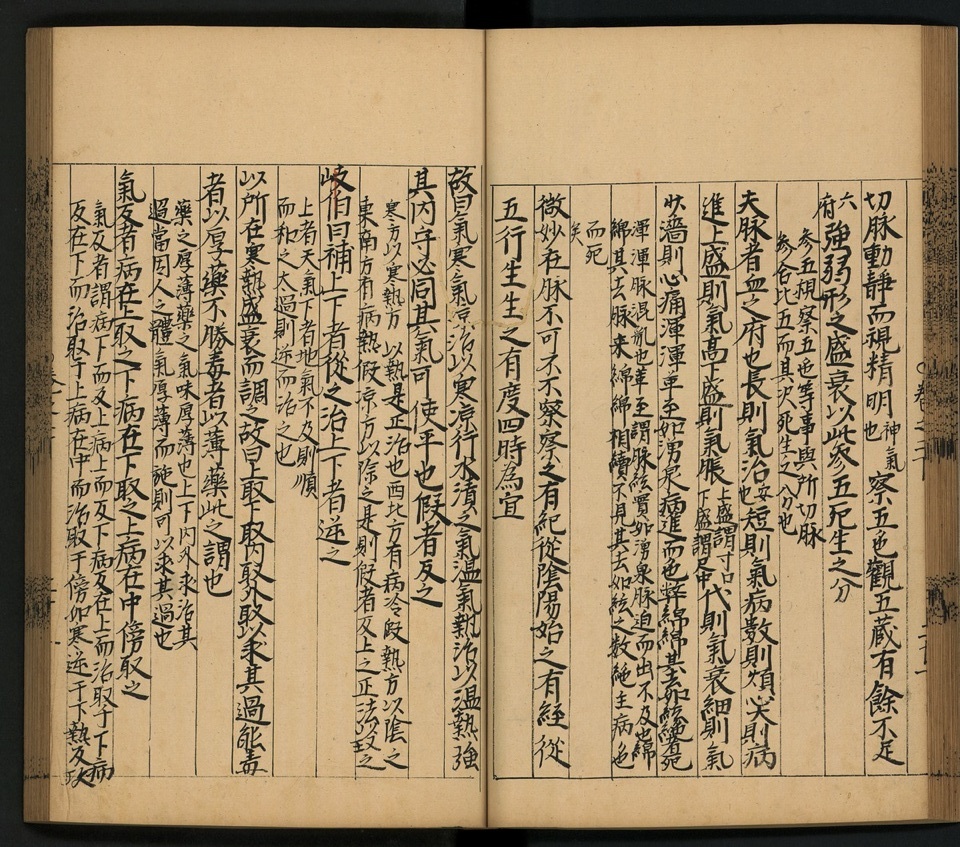 切脉動靜而視精明神氣也察五色觀五蔵有餘不足
六府強弱形之盛衰以此參五死生之分
參五視察五也等事與所切脉
參合比五而其次死生之分也
夫脉者血之府也長則氣治安也短則氣病數則煩心大則病
進上盛則氣高下盛則氣脹上盛謂寸口下盛謂尺中代則氣衰細則氣
状濇則心痛渾渾革至如湧泉病進而也弊綿綿其去如絃絶者死
渾渾脉混亂也革至謂脉絃買如湧泉脉迫而出不及也綿
綿其去脉来綿綿相續不見其去如絃之數絶主病也
而死
矣
微妙在脉不可不察察之有紀從陰陽始之有經從
五行生生之有度四時為宜
故曰氣寒氣凉治以寒凉行水漬之氣温氣熱治以温熱強
其内守必同其氣可使平也假者反之
寒方以寒熱方以熱是正治也西北方有病冷假熱方以陰之
東南方有病熱假凉方以除之是則假者反上之正法
岐伯曰補上下者從之治上下者逆之
上者天氣下者地氣不及則順
而和之太過則逆而治之也
以所在寒熱盛衰而調之故曰上取下取内取外取以求其過能毒
者以厚藥不勝毒者以薄藥此之謂也
藥之厚薄藥之氣味厚薄也上下内外求治其
過當因人之體氣厚薄而施則可以求其過也
氣反者病在上取之下病在下取之上病在中傍取之
氣反者謂病下而反上病上而反下病反在上而治取于下病
反在下而治取于上病在中而治取于傍如寒逆于下熱反